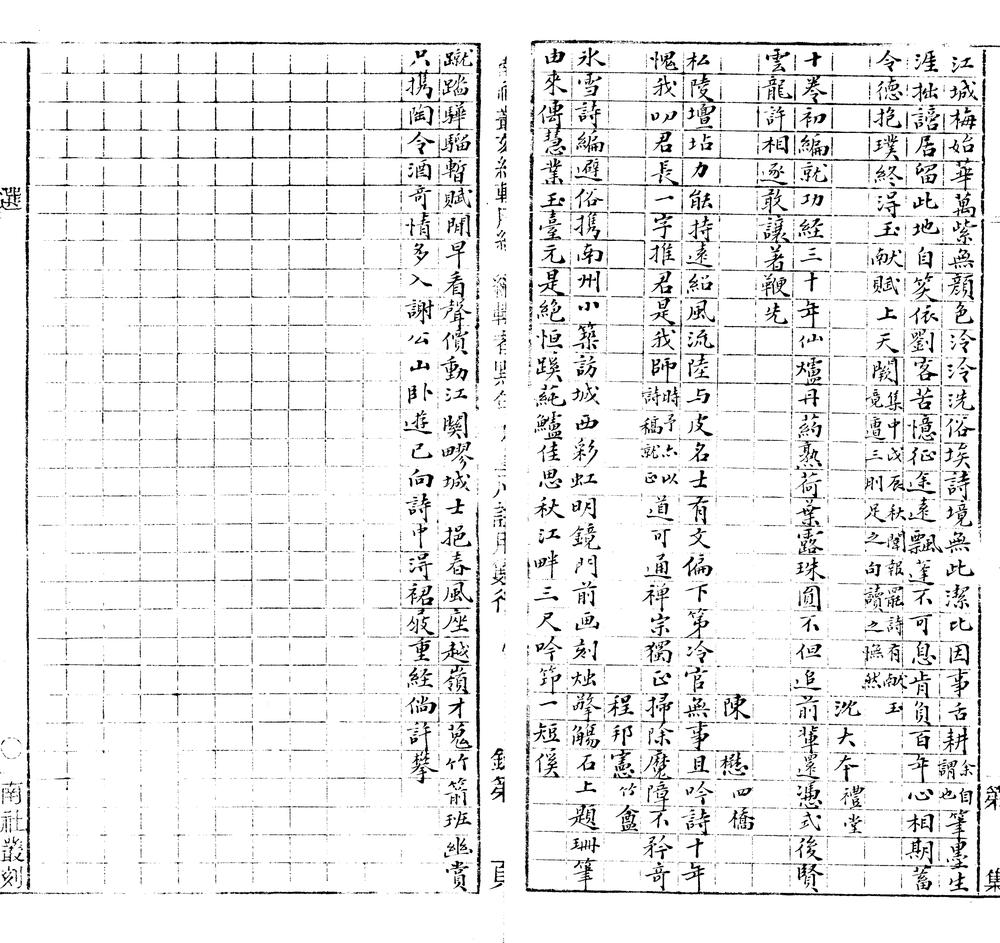 第 集
江城梅始華萬紫無顏色泠泠洗俗埃詩境無此潔比因事舌耕余自謂也筆墨生
涯拙謗居留此地自笑依劉客苦憶征途遠飄蓬不可息肯負百年心相期蓄
令德抱璞終淂玉献賦上天闕集中戊辰秋闈報罷詩有献玉竟遭三刖足之句讀之憮然
沈大本禮堂
十卷初編就功經三十年仙爐丹葯熟荷葉露珠圓不但追前輩還憑式後賢
雲龍許相逐敢讓著鞭先
陳懋四僑
松陵壇坫力能持遠紹風流陸与皮名士有文偏下第冷官無事且吟詩十年
愧我叨君長一字推君是我師時予亦以詩稿就正道可通禪宗獨正掃除魔障不矜奇
程邦憲竹盦
氷雪詩編避俗携南州小築訪城西彩虹明鏡門前画刻燭擎觴石上題珊筆
由來傳慧業玉臺元是絶恒蹊蒓鱸佳思秋江畔三尺吟筇一短傒
蹴踏驊騮暫賦閒早看聲價動江関嘐城士挹春風座越嶺才蒐竹箭班幽賞
只携陶令酒奇情多入謝公山卧遊已向詩中淂裙屐重經倘許攀
選
南社叢刻